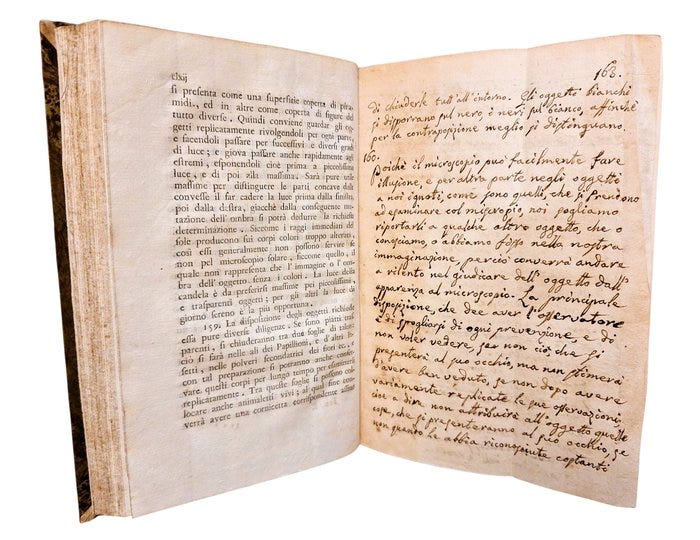 clxij
si presenta come una superfizie coperta di pira-
midi, ed in altre come coperta di figure del
tutto diverse. Quindi conviene guardar gli og-
getti replicatamente rivolgendoli per ogni parte,
e facendoli passare per successivi e diversi gradi
di luce; e giova passare anche rapidamente agli
estremi, esponendoli cioè prima a piccolissima
e di poi alla massima. Sarà pure utile
massime per distinguere le parti concave dalle
convesse il far cadere la luce prima dalla sinistra,
poi dalla destra, giacchè dalla conseguente mu-
tazione dell'ombra si potrà dedurre la richiesta
determinazione. Siccome i raggi immediati del
sole producono sui corpi colori troppo alterati,
così essi generalmente non possono servire se
non pel microscopio solare, siccome quello, il
quale non rappresenta che l'immagine o l'om-
bra dell'oggetto senza i colori. La luce della
candela è da preferirsi massime pei piccolissimi,
e trasparenti oggetti; per gli altri la luce di
giorno sereno è la più opportuna.
159. La disposizione degli oggetti richiede
essa pure diverse diligenze. Se sono piatti
si chiuderanno tra due foglie di talco,
ciò si farà nelle ali dei Papilioni, e d'altri In-
setti, nelle polveri fecondatrici dei fiori ec.
con tal preparazione si potranno anche conser-
vare quelli corpi per lungo tempo per esaminarli
replicatamente. Tra queste foglie si possono col-
locare anche animaletti vivi; al qual fine con-
verrà avere una cornicetta corrispondente affine
168.
di chiuderle tutt'all'intorno. Gli oggetti bianchi
si disporranno sul nero, e neri sul bianco, affinchè
per la contraposizione meglio si distinguano.
160.
Poichè il microscopio può facilmente fare
illusione, e per altra parte negli oggetti
a noi ignoti, come sono quelli, che si prendono
ad esaminare col microscopio, noi sogliamo
riportarli a qualche altro oggetto, che o
conosciamo, o abbiamo fisso nella nostra
immaginazione, perciò converrà andare
a rilento nel giudicare dell'oggetto dall'
apparenza al microscopio. La principale
disposizione, che dee aver l'osservatore
è di spogliarsi di ogni prevenzione, e di
non voler vedere, se non ciò che si
presenterà al suo occhio, ma non stimerà
d'avere ben veduto, se non dopo avere
variamente replicate le sue osservazioni,
cioè a dire non attribuirà all'oggetto quelle
cose, che si presenteranno al suo occhio, se
non quando le abbia riconosciute costanti